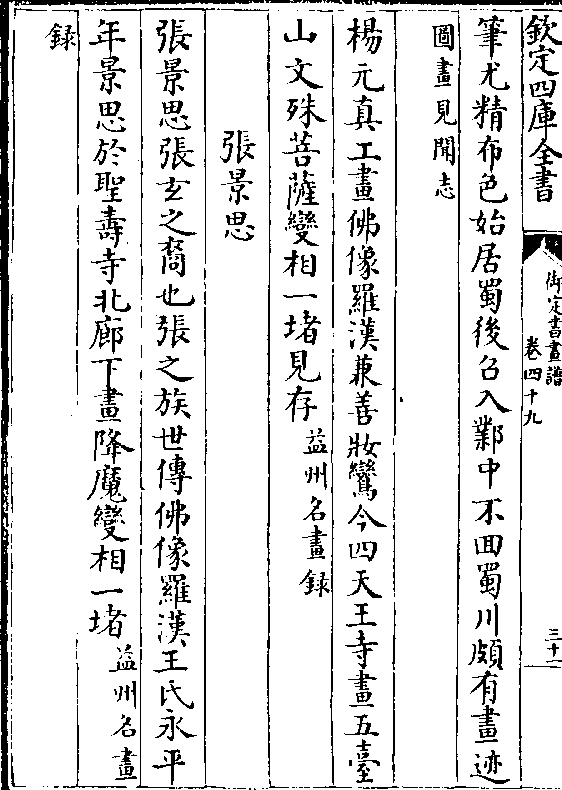 欽定四庫全書
御定書畫譜
卷四十九
三十一
筆尤精布色始居蜀後召入鄴中不回蜀川頗有畫迹
圖畫見聞志
楊元真工畫佛像羅漢兼善妝鸞今四天王寺畫五臺
山文殊菩薩變相一堵見存益州名畫録
張景思
張景思張玄之裔也張之族世傳佛像羅漢王氏永平
年景思於聖壽寺北廊下畫降魔變相一堵益州名畫
録